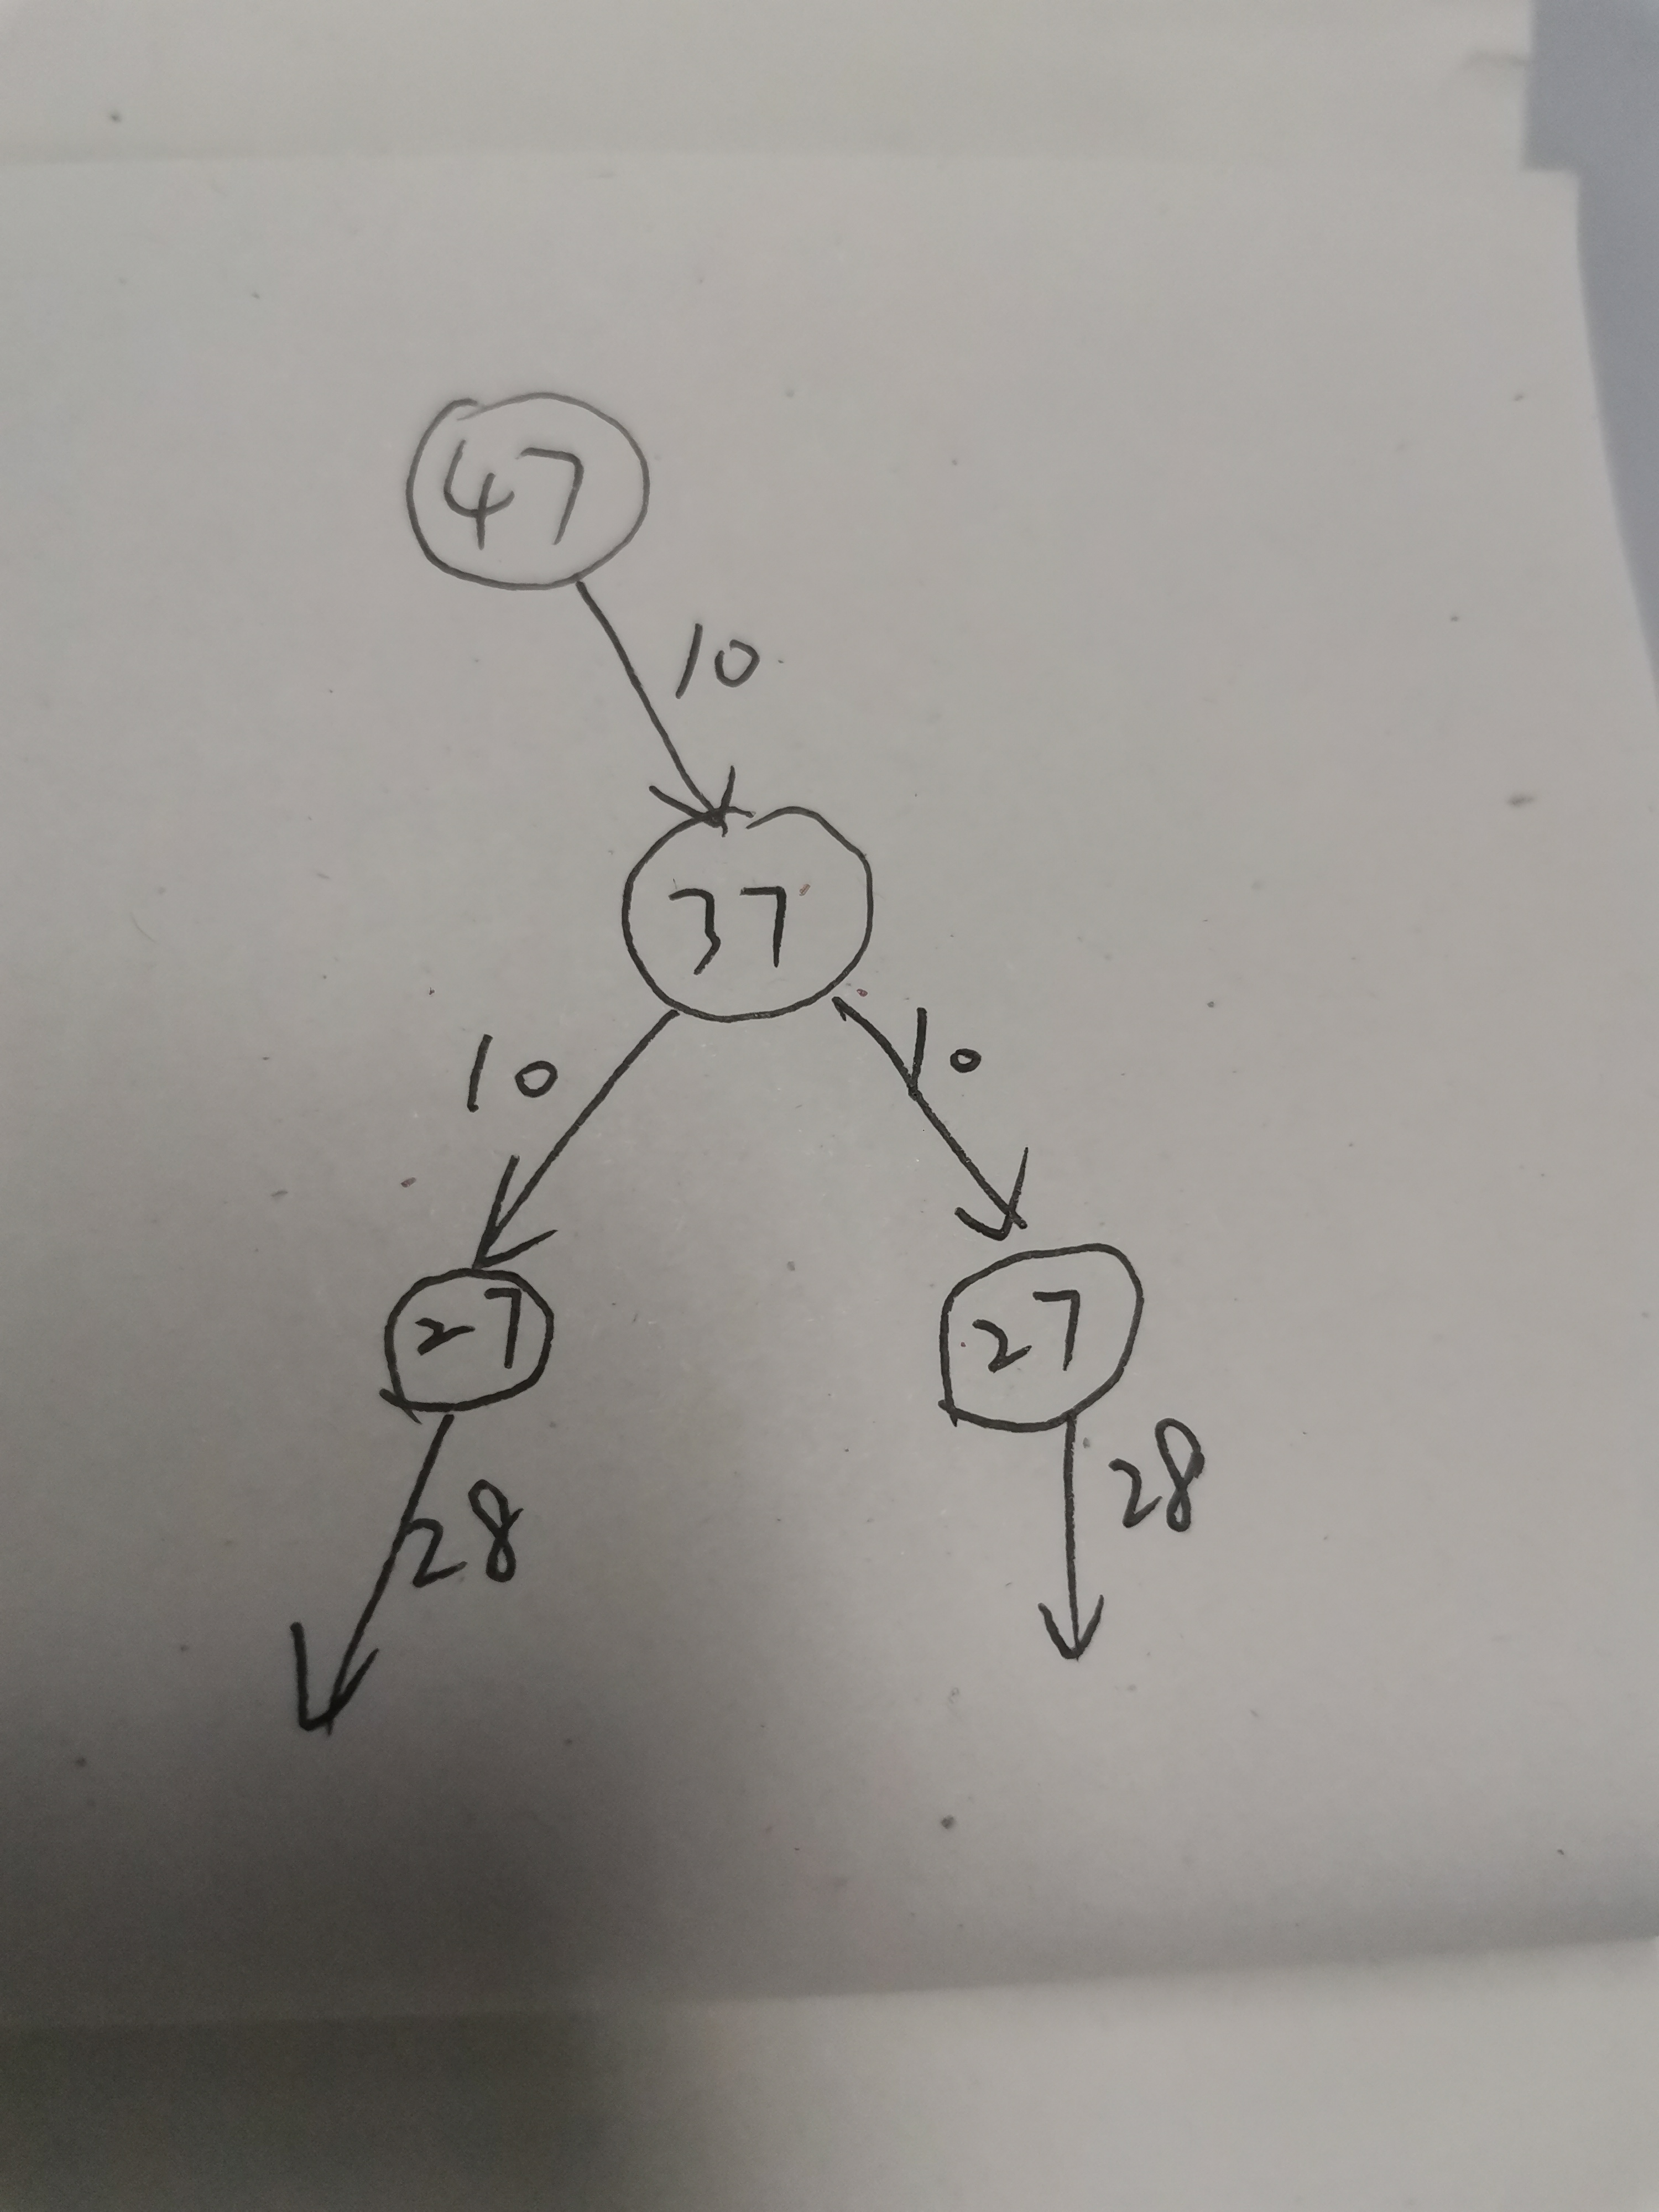 47
10
37
10
10
27
27
28
28